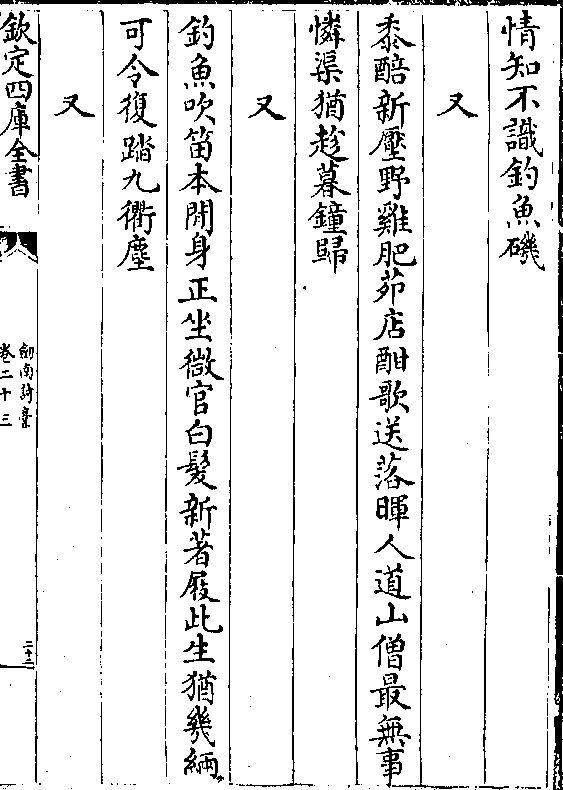 情知不識釣魚磯
又
黍醅新壓野雞肥茆店酣歌送落暉人道山僧最無事
憐渠猶趁暮鐘歸
又
釣魚吹笛本閒身正坐微官白髮新著屐此生猶幾緉
可令復踏九衢塵
又
欽定四庫全書
劍南詩藁
卷二十三